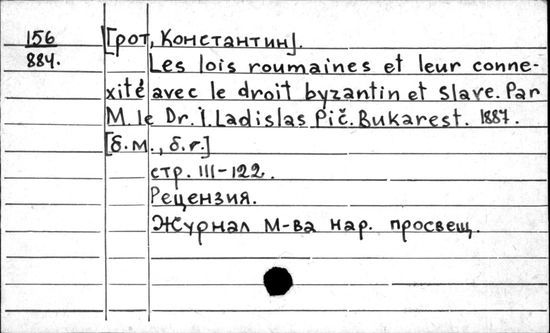 156
884.
[Грот, Константин].
Les lois roumaines et leur conne-
xité avec le droit byzantin et slave. Par
M. le Dr. Ï. Ladislas Pič. Bukarest. 1887.
[б.м., б.г.]
стр. III-122.
Рецензия.
Журнал М-ва нар. просвещ.